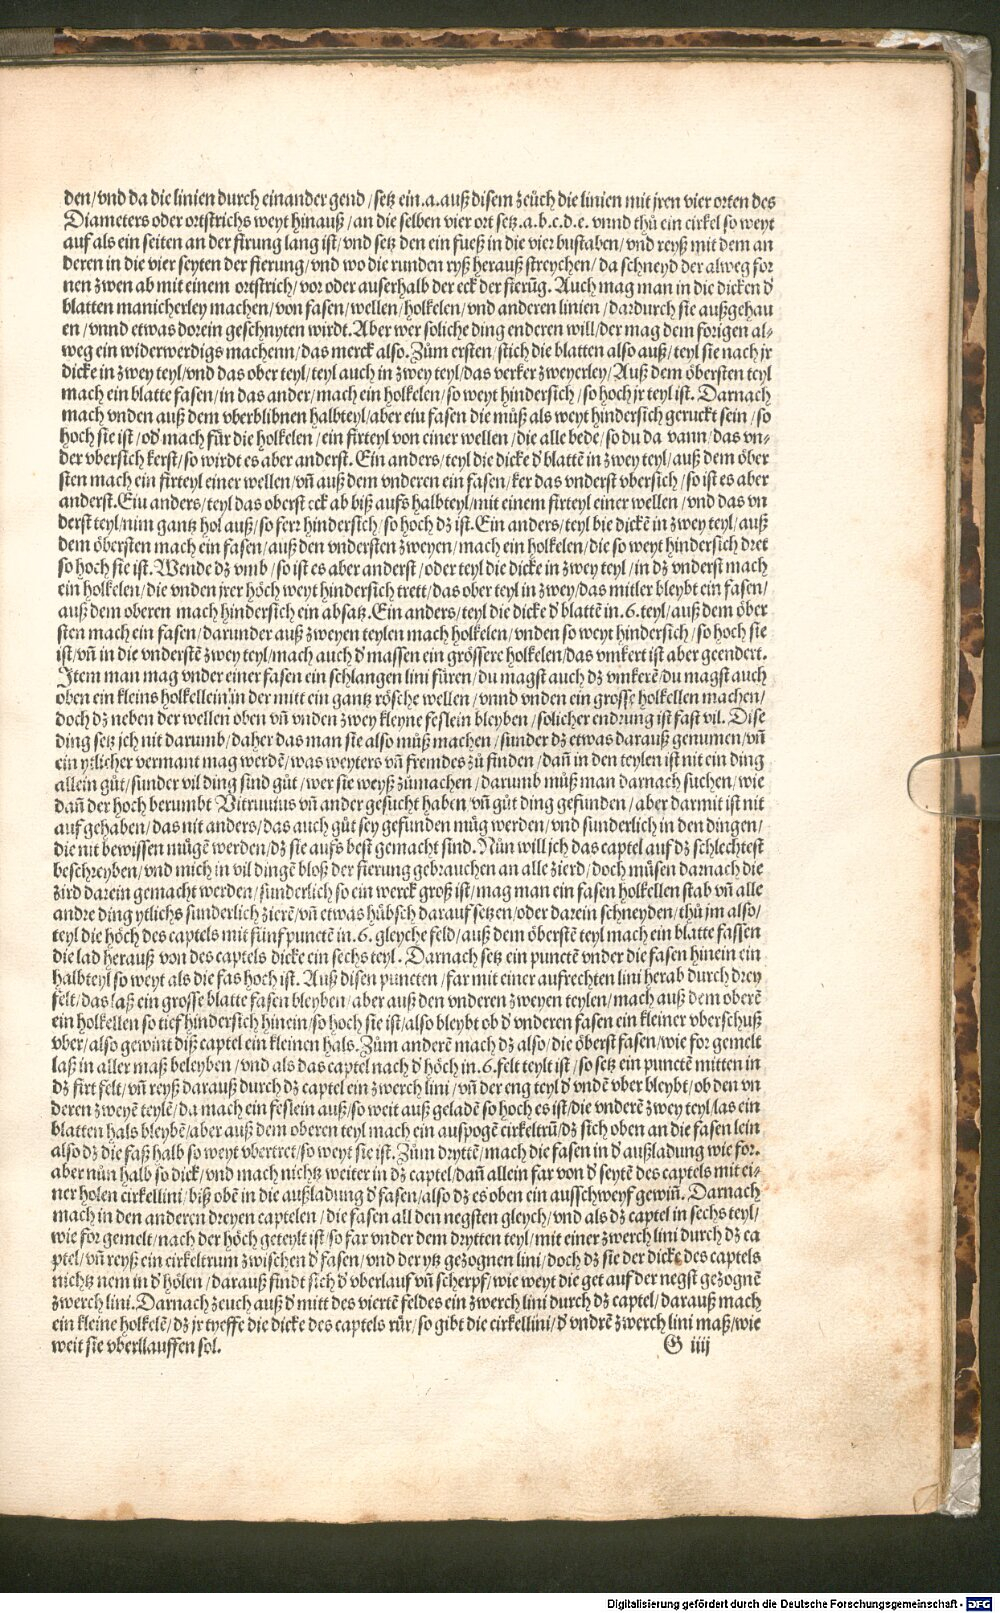 den/vnd da die linien durch einander gend/setz ein.a.auß disem zeuͤch die linien mit jren vier orten des
Diameters oder ortstrichs weyt hinauß/an die selben vier ort setz.a.b.c.d.e.vnnd thuͦ ein cirkel so weyt
auf als ein seiten an der firung lang ist/vnd setz den ein fueß in die vier bustaben/vnd reyß mit dem an
deren in die vier seyten der fierung/vnd wo die runden ryß herauß streychen/da schneyd der alweg for
nen zwen ab mit einem ortstrich/vor oder auserhalb der eck der fierūg. Auch mag man in die dicken d̕
blatten manicherley machen/von fasen/wellen/holkelen/vnd anderen linien/dardurch sie außgehau
en/vnnd etwas dorein geschnyten wirdt. Aber wer soliche ding enderen will/der mag dem forigen al⸗
weg ein widerwerdigs machenn/das merck also. Zuͦm ersten/stich die blatten also auß/teyl sie nach jr
dicke in zwey teyl/vnd das ober teyl/teyl auch in zwey teyl/das verker zweyerley/Auß dem oͤbersten teyl
mach ein blatte fasen/in das ander/mach ein holkelen/so weyt hindersich/so hoch jr teyl ist. Darnach
mach vnden auß dem vberblibnen halbteyl/aber ein fasen die muͦß als weyt hindersich geruckt sein/so
hoch sie ist/od̕ mach fuͤr die holkelen/ein firteyl von einer wellen/die alle bede/so du da vann/das vn⸗
der vbersich kerst/so wirdt es aber anderst. Ein anders/teyl die dicke d̕ blattē in zwey teyl/auß dem oͤber
sten mach ein firteyl einer wellen/vn̄ auß dem vnderen ein fasen/ker das vnderst vbersich/so ist es aber
anderst. Ein anders/teyl das oberst eck ab biß aufs halbteyl/mit einem firteyl einer wellen/vnd das vn
derst teyl/nim gantz hol auß/so ferr hindersich/so hoch dz ist. Ein anders/teyl die dickē in zwey teyl/auß
dem oͤbersten mach ein fasen/auß den vndersten zweyen/mach ein holkelen/die so weyt hindersich dret
so hoch sie ist. Wende dz vmb/so ist es aber anderst/oder teyl die dicke in zwey teyl/in dz vnderst mach
ein holkelen/die vnden jrer hoͤch weyt hindersich trett/das ober teyl in zwey/das mitler bleybt ein fasen/
auß dem oberen mach hindersich ein absatz. Ein anders/teyl die dicke d̕ blattē in.6.teyl/auß dem oͤber
sten mach ein fasen/darunder auß zweyen teylen mach holkelen/vnden so weyt hindersich/so hoch sie
ist/vn̄ in die vnderstē zwey teyl/mach auch d̕ massen ein groͤssere holkelen/das vmkert ist aber geendert.
Item man mag vnder einer fasen ein schlangen lini fuͤren/du magst auch dz vmkerē/du magst auch
oben ein kleins holkellein/in der mitt ein gantz roͤsche wellen/vnnd vnden ein grosse holkellen machen/
doch dz neben der wellen oben vn̄ vnden zwey kleyne feslein bleyben/solicher endrung ist fast vil. Dise
ding setz jch nit darumb/daher das man sie also muͦß machen/sunder dz etwas darauß genumen/vn̄
ein ytlicher vermant mag werdē/was weyters vn̄ fremdes zuͦ finden/dan̄ in den teylen ist nit ein ding
allein guͦt/sunder vil ding sind guͦt/wer sie weyß zuͦmachen/darumb muͦß man darnach suchen/wie
dan̄ der hoch berumbt Vitruuius vn̄ ander gesucht haben/vn̄ guͦt ding gefunden/aber darmit ist nit
auf gehaben/das nit anders/das auch guͦt sey gefunden muͤg werden/vnd sunderlich in den dingen/
die nit bewissen muͤgē werden/dz sie aufs best gemacht sind. Nuͦn will jch das captel auf dz schlechtest
beschreyben/vnd mich in vil dingē bloß der fierung gebrauchen an alle zierd/doch muͤsen darnach die
zird darein gemacht werden/sunderlich so ein werck groß ist/mag man ein fasen holkellen stab vn̄ alle
andre ding ytlichs sunderlich zierē/vn̄ etwas huͤbsch darauf setzen/oder darein schneyden/thuͦ jm also/
teyl die hoͤch des captels mit fuͤnf punctē in.6.gleyche feld/auß dem oͤberstē teyl mach ein blatte fassen
die lad herauß von des captels dicke ein sechs teyl. Darnach setz ein punctē vnder die fasen hinein ein
halbteyl so weyt als die fas hoch ist. Auß disen puncten/far mit einer aufrechten lini herab durch drey
felt/das laß ein grosse blatte fasen bleyben/aber auß den vnderen zweyen teylen/mach auß dem oberē
ein holkellen so tief hindersich hinein/so hoch sie ist/also bleybt ob d̕ vnderen fasen ein kleiner vberschuß
vber/also gewint diß captel ein kleinen hals. Zuͦm anderē mach dz also/die oͤberst fasen/wie for gemelt
laß in aller maß beleyben/vnd als das captel nach d̕ hoͤch in.6.felt teylt ist/so setz ein punctē mitten in
dz firt felt/vn̄ reyß darauß durch dz captel ein zwerch lini/vn̄ der eng teyl d̕ vndē vber bleybt/ob den vn
deren zweyē teylē/da mach ein feslein auß/so weit auß geladē so hoch es ist/die vnderē zwey teyl/las ein
blatten hals bleybē/aber auß dem oberen teyl mach ein auspogē cirkeltrū/dz sich oben an die fasen lein
also dz die faß halb so weyt vbertret/so weyt sie ist. Zuͦm dryttē/mach die fasen in d̕ außladung wie for.
aber nuͦn halb so dick/vnd mach nichtz weiter in dz captel/dan̄ allein far von d̕ seytē des captels mit ei⸗
ner holen cirkellini/biß obē in die außladung d̕ fasen/also dz es oben ein ausschweyf gewin̄. Darnach
mach in den anderen dreyen captelen/die fasen all den negsten gleych/vnd als dz captel in sechs teyl/
wie for gemelt/nach der hoͤch geteylt ist/so far vnder dem drytten teyl/mit einer zwerch lini durch dz ca
ptel/vn̄ reyß ein cirkeltrum zwischen d̕ fasen/vnd der ytz gezognen lini/doch dz sie der dicke des captels
nichtz nem in d̕ hoͤlen/darauß findt sich d̕ vberlauf vn̄ scherpf/wie weyt die get auf der negst gezognē
zwerch lini. Darnach zeuch auß d̕ mitt des viertē feldes ein zwerch lini durch dz captel/darauß mach
ein kleine holkelē/dz jr tyeffe die dicke des captels ruͤr/so gibt die cirkellini/d̕ vndrē zwerch lini maß/wie
weit sie vberllauffen sol.
G iiij
Digitalisierung gefördert durch die Deutsche Forschungsgemeinschaft - DFG